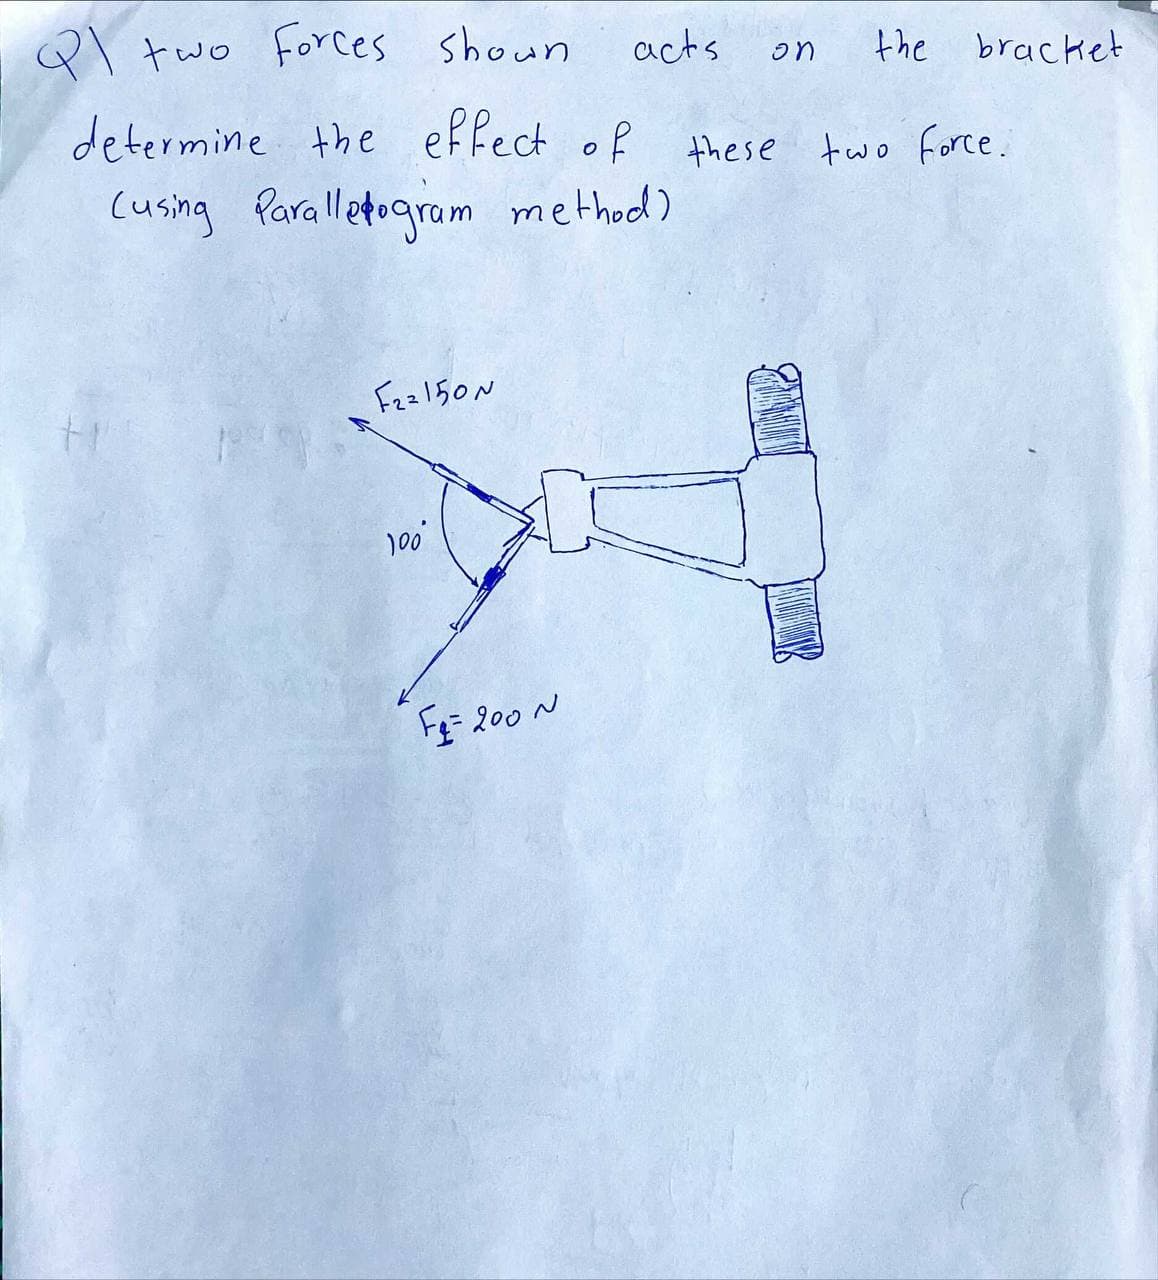 Q1 two forces shown acts on the bracket
determine the effect of these two force.
(using Parallelogram method)
F2=150N
100°
F1= 200 N